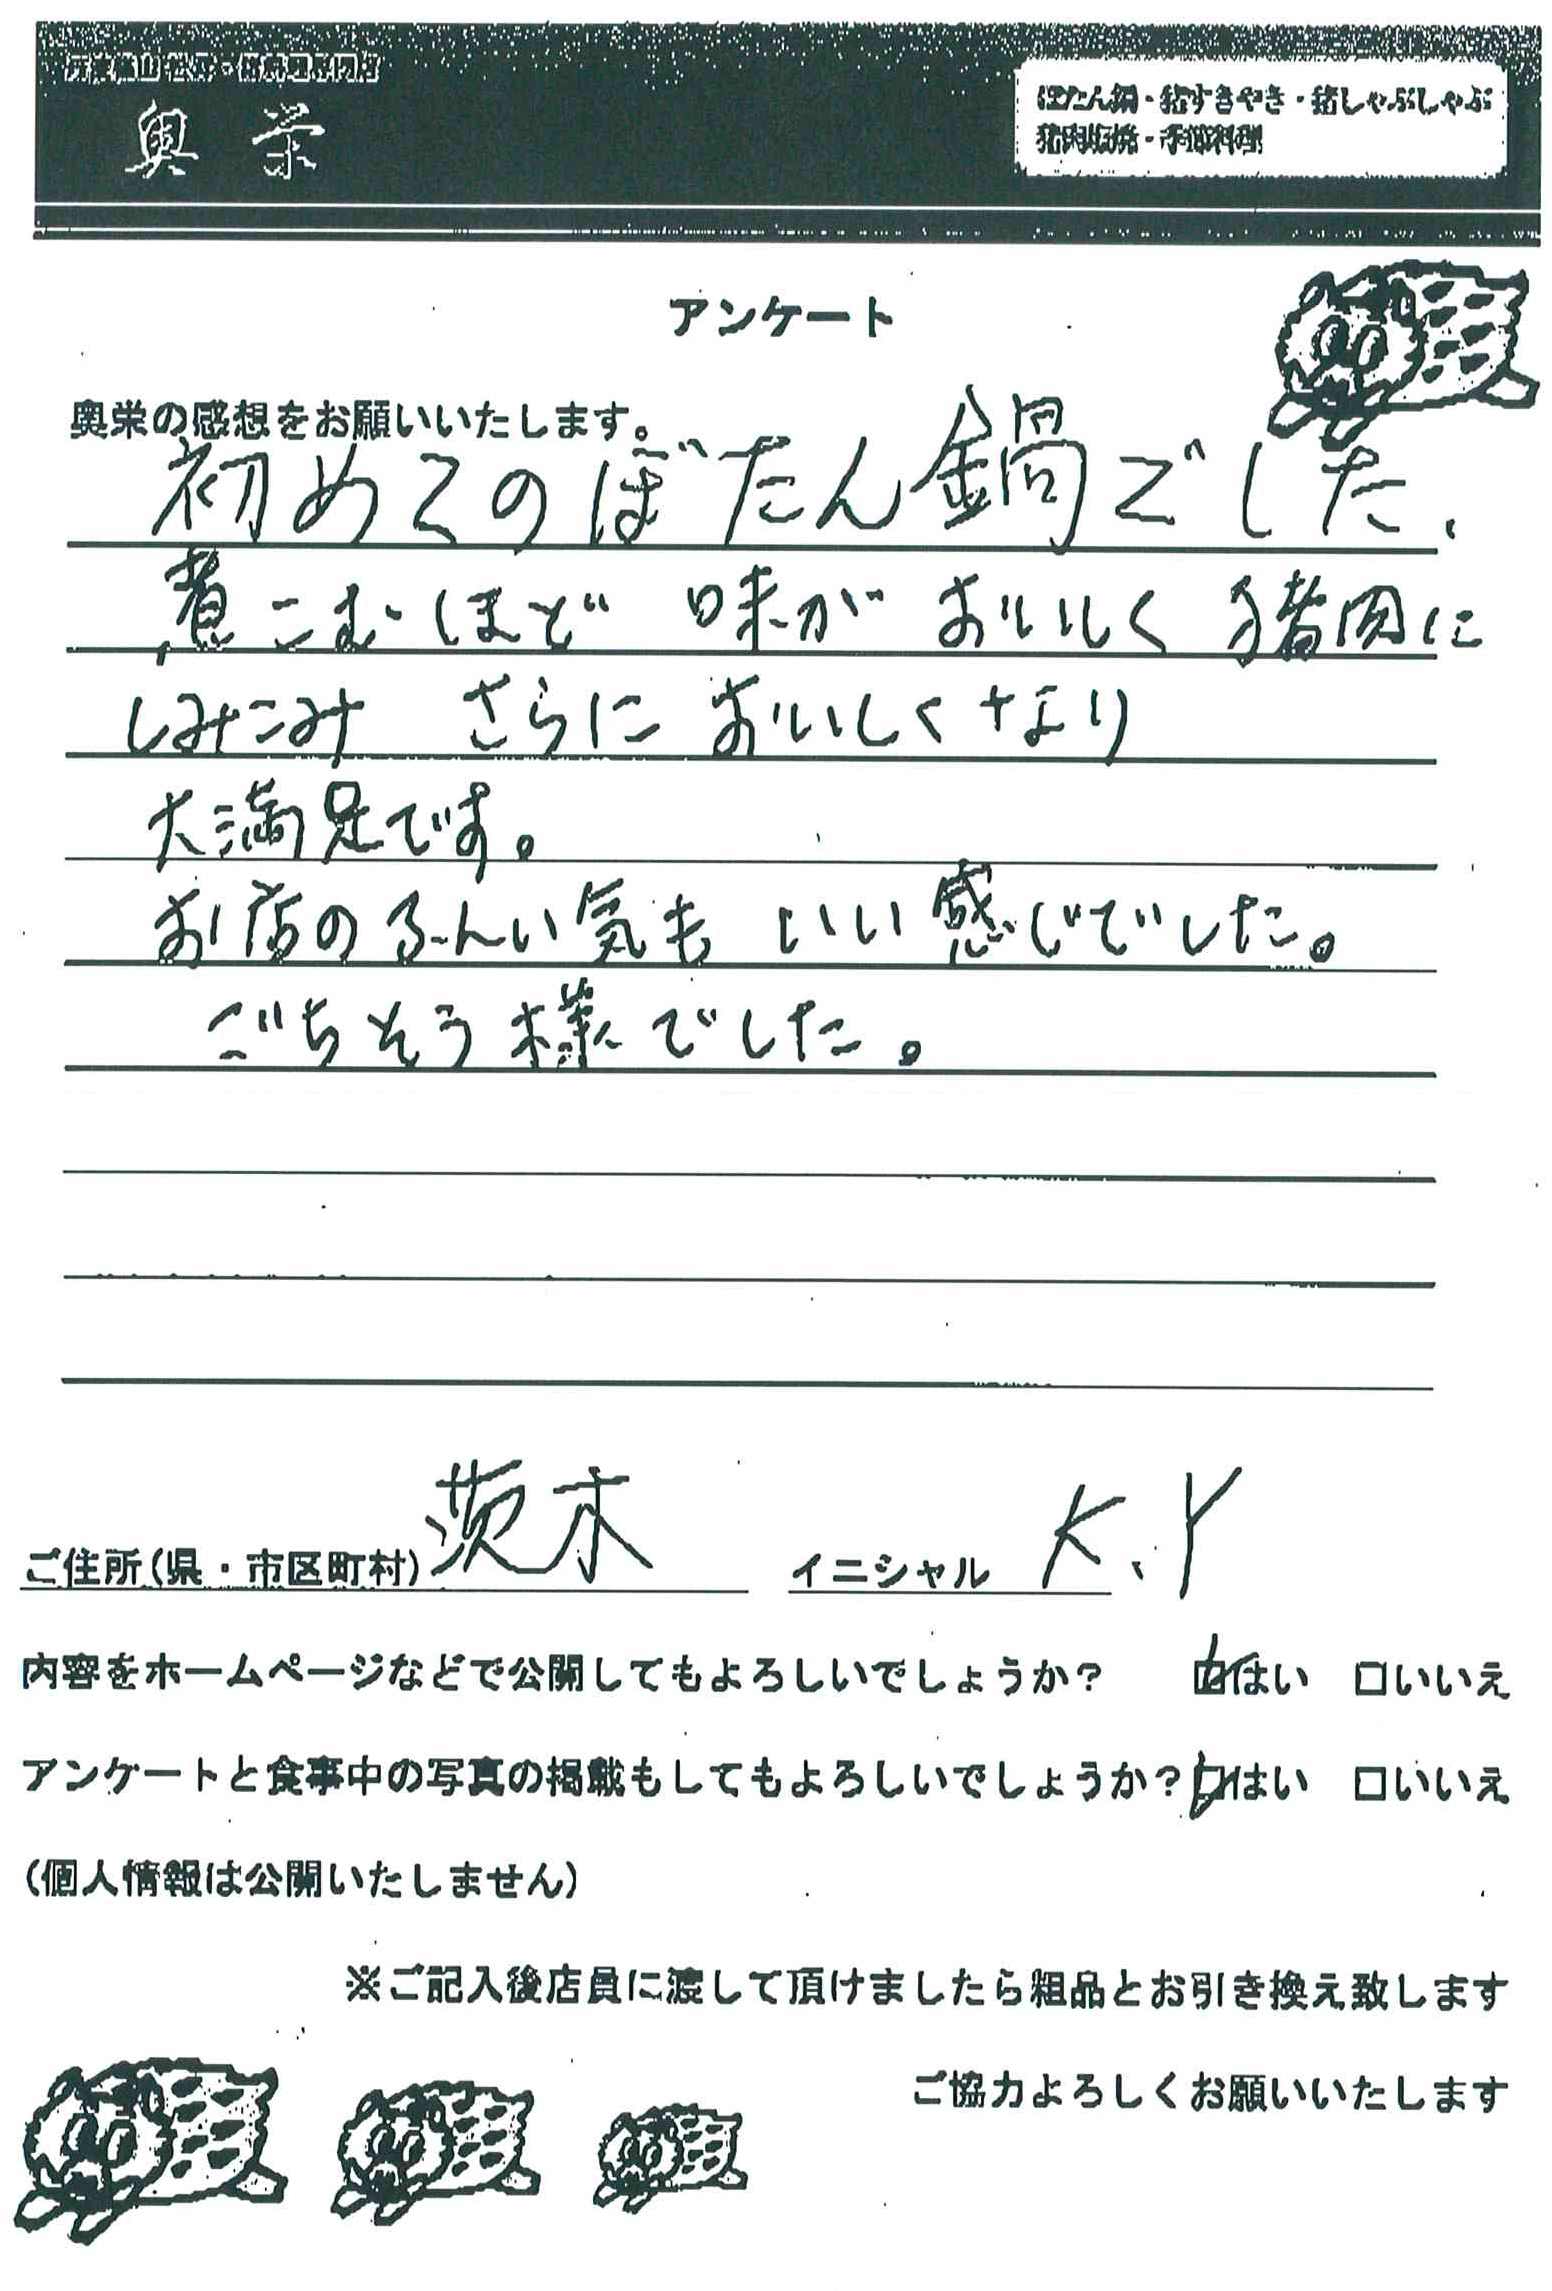 奥栄
ぼたん鍋・猪すきやき・猪しゃぶしゃぶ
猪肉塩焼・季節料理
アンケート
奥栄の感想をお願いいたします。
初めてのぼたん鍋でした、
煮こむほど 味が おいしく 猪肉に
しみこみ さらに おいしくなり
大満足です。
お店のふんい気も いい感じでした。
ごちそう様でした。
ご住所(県・市区町村) 茨木 イニシャル K.Y
内容をホームページなどで公開してもよろしいでしょうか? ☑はい □いいえ
アンケートと食事中の写真の掲載もしてもよろしいでしょうか? ☑はい □いいえ
(個人情報は公開いたしません)
※ご記入後店員に渡して頂けましたら粗品とお引き換え致します
ご協力よろしくお願いいたします